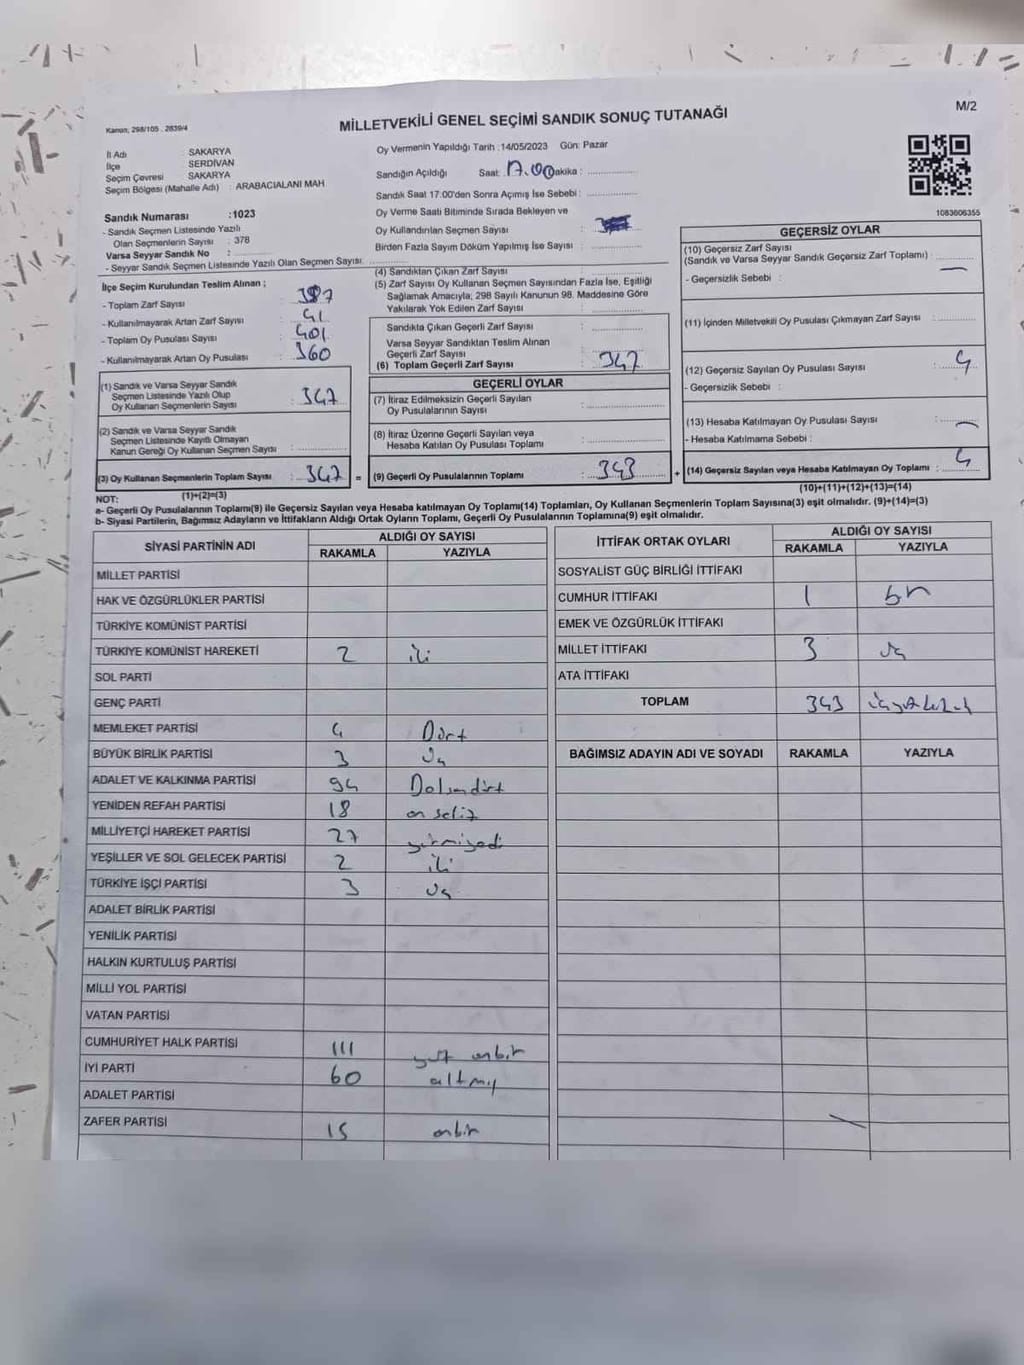 Kanun; 298/105 . 2839/4
MİLLETVEKİLİ GENEL SEÇİMİ SANDIK SONUÇ TUTANAĞI
M/2
İl Adı SAKARYA
İlçe SERDİVAN
Seçim Çevresi SAKARYA
Seçim Bölgesi (Mahalle Adı) : ARABACIALANI MAH
Oy Vermenin Yapıldığı Tarih :14/05/2023 Gün: Pazar
Sandığın Açıldığı Saat: 17.00 Dakika : ..............
Sandık Saat 17.00'den Sonra Açımış İse Sebebi : ..............
Oy Verme Saati Bitiminde Sırada Bekleyen ve
Oy Kullandırılan Seçmen Sayısı :
Birden Fazla Sayım Döküm Yapılmış İse Sayısı : ..............
1083606355
Sandık Numarası :1023
- Sandık Seçmen Listesinde Yazılı
Olan Seçmenlerin Sayısı : 378
Varsa Seyyar Sandık No : ..............
- Seyyar Sandık Seçmen Listesinde Yazılı Olan Seçmen Sayısı: ..............
İlçe Seçim Kurulundan Teslim Alınan ;
- Toplam Zarf Sayısı :
- Kullanılmayarak Artan Zarf Sayısı : 41
- Toplam Oy Pusulası Sayısı : 401
- Kullanılmayarak Artan Oy Pusulası : 360
(1) Sandık ve Varsa Seyyar Sandık
Seçmen Listesinde Yazılı Olup
Oy Kullanan Seçmenlerin Sayısı : 347
(2) Sandık ve Varsa Seyyar Sandık
Seçmen Listesinde Kayıtlı Olmayan
Kanun Gereği Oy Kullanan Seçmen Sayısı : ..............
(3) Oy Kullanan Seçmenlerin Toplam Sayısı : 347 =
(1)+(2)=(3)
(4) Sandıktan Çıkan Zarf Sayısı : ..............
(5) Zarf Sayısı Oy Kullanan Seçmen Sayısından Fazla İse, Eşitliği
Sağlamak Amacıyla; 298 Sayılı Kanunun 98. Maddesine Göre
Yakılarak Yok Edilen Zarf Sayısı : ..............
Sandıkta Çıkan Geçerli Zarf Sayısı : ..............
Varsa Seyyar Sandıktan Teslim Alınan
Geçerli Zarf Sayısı : ..............
(6) Toplam Geçerli Zarf Sayısı : 347
GEÇERLİ OYLAR
(7) İtiraz Edilmeksizin Geçerli Sayılan
Oy Pusulalarının Sayısı : ..............
(8) İtiraz Üzerine Geçerli Sayılan veya
Hesaba Katılan Oy Pusulası Toplamı : ..............
(9) Geçerli Oy Pusulalarının Toplamı : 343 +
GEÇERSİZ OYLAR
(10) Geçersiz Zarf Sayısı
(Sandık ve Varsa Seyyar Sandık Geçersiz Zarf Toplamı) : —
- Geçersizlik Sebebi :
(11) İçinden Milletvekili Oy Pusulası Çıkmayan Zarf Sayısı : ..............
(12) Geçersiz Sayılan Oy Pusulası Sayısı : 4
- Geçersizlik Sebebi :
(13) Hesaba Katılmayan Oy Pusulası Sayısı : —
- Hesaba Katılmama Sebebi :
(14) Geçersiz Sayılan veya Hesaba Katılmayan Oy Toplamı : 4
(10)+(11)+(12)+(13)=(14)
NOT:
a- Geçerli Oy Pusulalarının Toplamı(9) ile Geçersiz Sayılan veya Hesaba katılmayan Oy Toplamı(14) Toplamları, Oy Kullanan Seçmenlerin Toplam Sayısına(3) eşit olmalıdır. (9)+(14)=(3)
b- Siyasi Partilerin, Bağımsız Adayların ve İttifakların Aldığı Ortak Oyların Toplamı, Geçerli Oy Pusulalarının Toplamına(9) eşit olmalıdır.
SİYASİ PARTİNİN ADI ALDIĞI OY SAYISI
RAKAMLA YAZIYLA
MİLLET PARTİSİ
HAK VE ÖZGÜRLÜKLER PARTİSİ
TÜRKİYE KOMÜNİST PARTİSİ
TÜRKİYE KOMÜNİST HAREKETİ 2 iki
SOL PARTİ
GENÇ PARTİ
MEMLEKET PARTİSİ 4 Dört
BÜYÜK BİRLİK PARTİSİ 3 üç
ADALET VE KALKINMA PARTİSİ 94 Doksandört
YENİDEN REFAH PARTİSİ 18 on sekiz
MİLLİYETÇİ HAREKET PARTİSİ 27 yirmiyedi
YEŞİLLER VE SOL GELECEK PARTİSİ 2 iki
TÜRKİYE İŞÇİ PARTİSİ 3 üç
ADALET BİRLİK PARTİSİ
YENİLİK PARTİSİ
HALKIN KURTULUŞ PARTİSİ
MİLLİ YOL PARTİSİ
VATAN PARTİSİ
CUMHURİYET HALK PARTİSİ 111 yüz onbir
İYİ PARTİ 60 altmış
ADALET PARTİSİ
ZAFER PARTİSİ 15 onbir
İTTİFAK ORTAK OYLARI ALDIĞI OY SAYISI
RAKAMLA YAZIYLA
SOSYALİST GÜÇ BİRLİĞİ İTTİFAKI
CUMHUR İTTİFAKI 1 bir
EMEK VE ÖZGÜRLÜK İTTİFAKI
MİLLET İTTİFAKI 3 üç
ATA İTTİFAKI
TOPLAM 343
BAĞIMSIZ ADAYIN ADI VE SOYADI RAKAMLA YAZIYLA